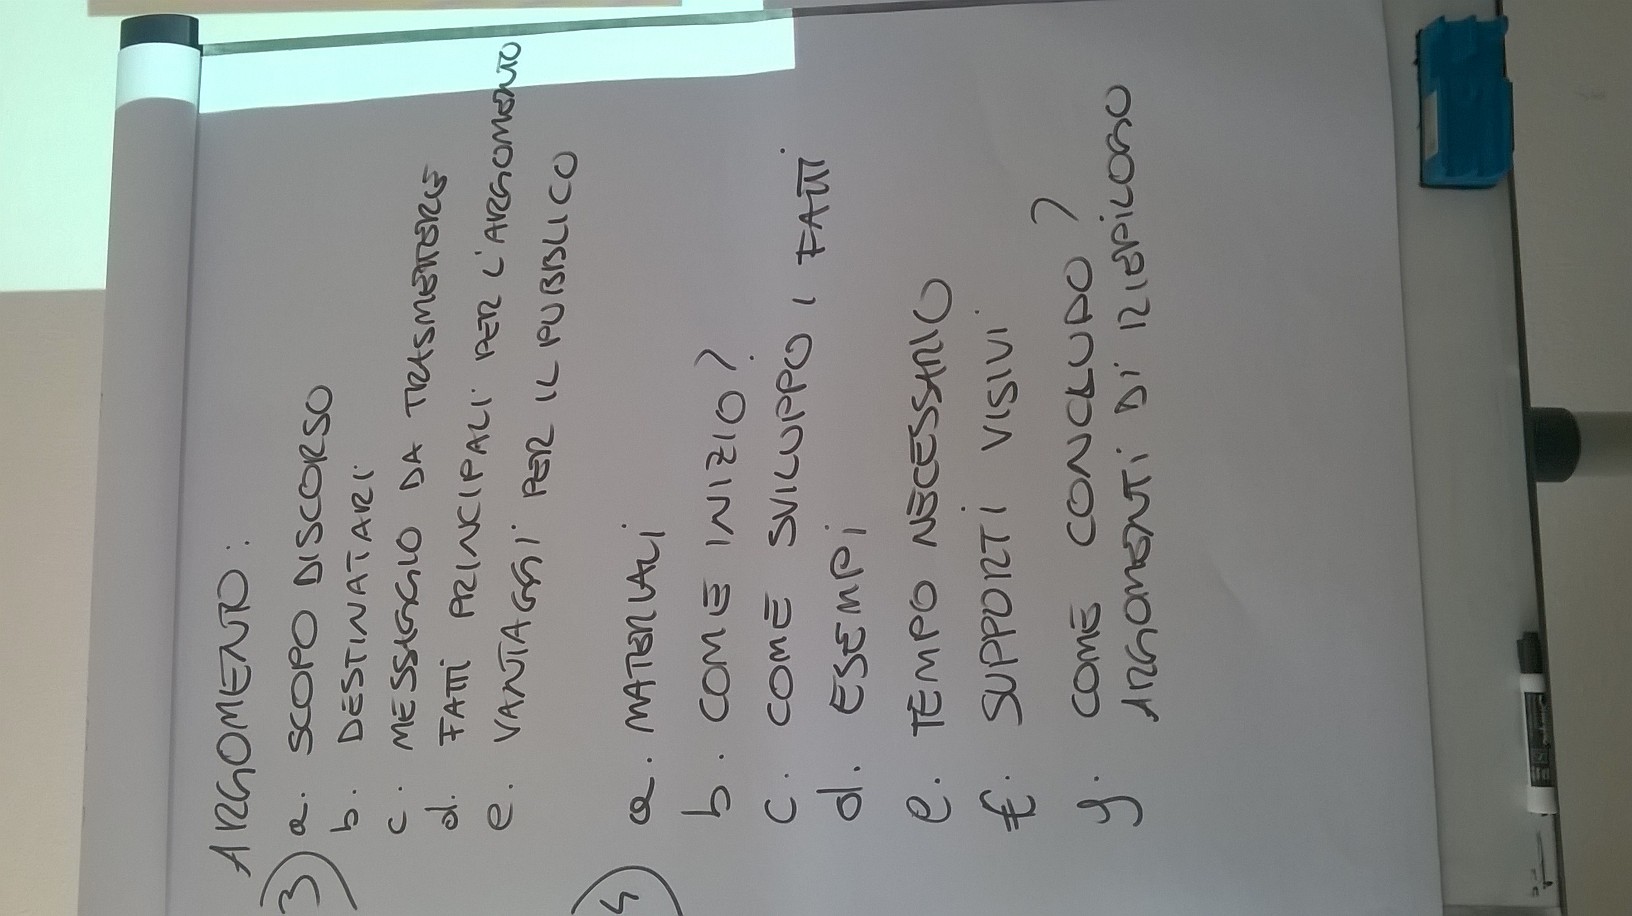 ARGOMENTO:
3) a. SCOPO DISCORSO
b. DESTINATARI
c. MESSAGGIO DA TRASMETTERE
d. FATTI PRINCIPALI PER L'ARGOMENTO
e. VANTAGGI PER IL PUBBLICO
4) a. MATERIALI
b. COME INIZIO?
c. COME SVILUPPO I FATTI
d. ESEMPI
e. TEMPO NECESSARIO
f. SUPPORTI VISIVI
g. COME CONCLUDO?
ARGOMENTI DI RIEPILOGO?